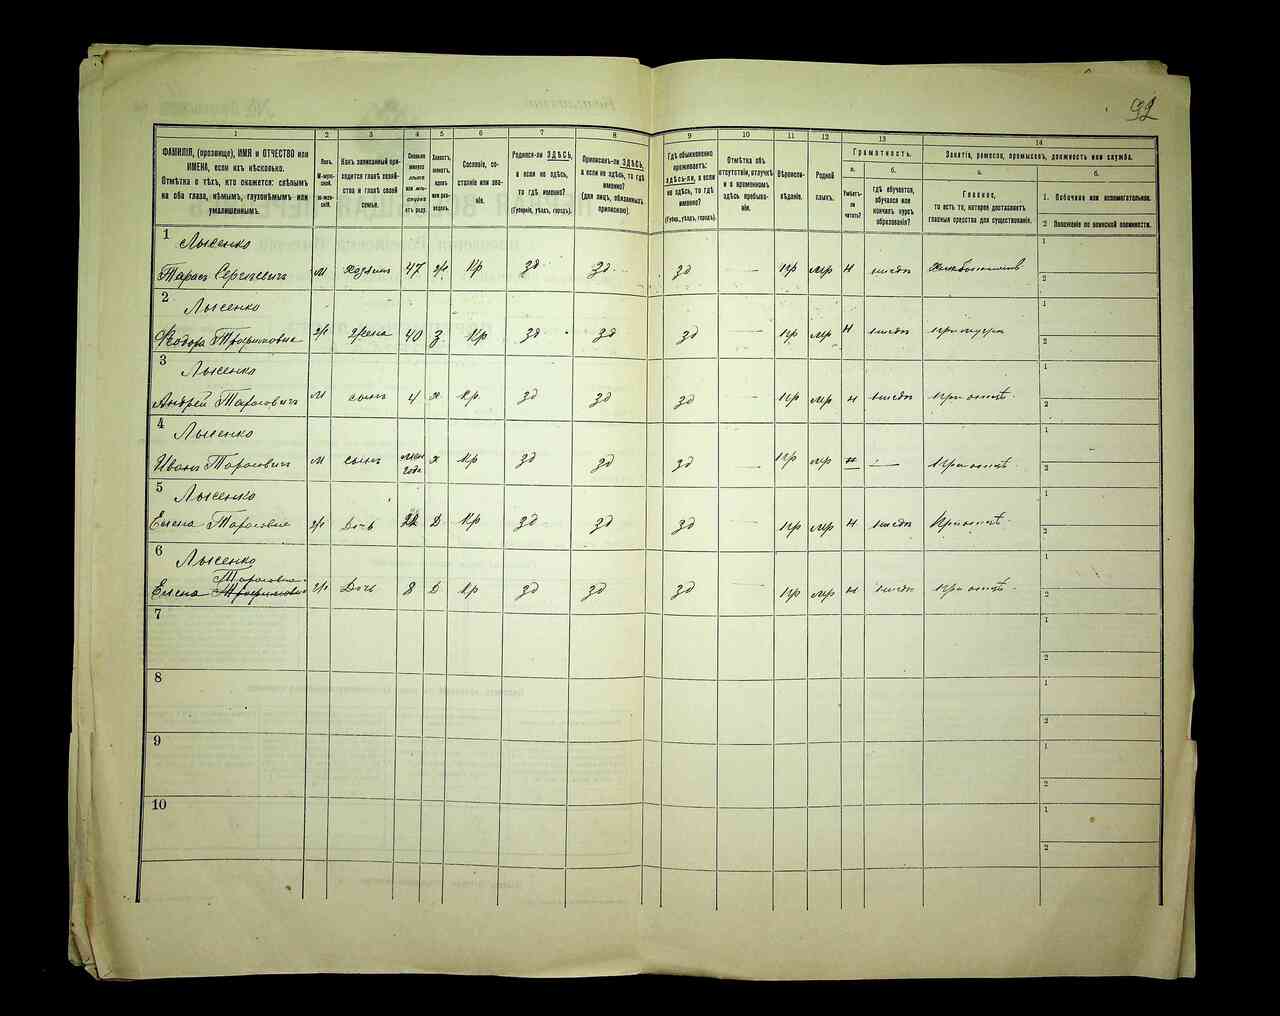 92
1
2
3
4
5
6
7
8
9
10
11
12
13
14
ФАМИЛІЯ, (прозвище), ИМЯ и ОТЧЕСТВО или
ИМЕНА, если ихъ нѣсколько.
Отмѣтка о тѣхъ, кто окажется: слѣпымъ
на оба глаза, нѣмымъ, глухонѣмымъ или
умалишеннымъ.
Полъ.
М-муж-
ской.
Ж-жен-
скій.
Какъ записанный при-
ходится главѣ хозяй-
ства и главѣ своей
семьи.
Сколько
минуло
лѣтъ
или мѣ-
сяцевъ
отъ роду.
Холостъ,
женатъ,
вдовъ
или раз-
веденъ.
Сословіе, со-
стояніе или зва-
ніе.
Родился-ли ЗДѢСЬ,
а если не здѣсь,
то гдѣ именно?
(Губернія, уѣздъ, городъ).
Приписанъ-ли ЗДѢСЬ,
а если не здѣсь, то гдѣ
именно?
(для лицъ, обязанныхъ
припискою).
Гдѣ обыкновенно
проживаетъ:
здѣсь-ли, а если
не здѣсь, то гдѣ
именно?
(Губер., уѣздъ, городъ).
Отмѣтка объ
отсутствіи, отлучкѣ
и о временномъ
здѣсь пребыва-
ніи.
Вѣроиспо-
вѣданіе.
Родной
языкъ.
Грамотность.
а.
Умѣетъ-
ли
читать?
б.
гдѣ обучается,
обучался или
кончилъ курсъ
образованія?
Занятіе, ремесло, промыселъ, должность или служба.
а.
Главное,
то есть то, которое доставляетъ
главныя средства для существованія.
б.
1. Побочное или вспомогательное.
2 Положеніе по воинской повинности.
1
Лысенко
Тарасъ Сергѣевичъ м хозяинъ 47 ж Кр зд зд зд — пр мр н нигдѣ
1
2
2
Лысенко
Ѳеодора Трофимовна ж жена 40 З Кр зд зд зд — пр мр н нигдѣ при мужѣ
1
2
3
Лысенко
Андрей Тарасовичъ м сынъ 4 х Кр зд зд зд — пр мр н нигдѣ при отцѣ
1
2
4
Лысенко
Иванъ Тарасовичъ м сынъ года х Кр зд зд зд — пр мр н — при отцѣ
1
2
5
Лысенко
Елена Тарасовна ж дочь Д Кр зд зд зд — пр мр н нигдѣ При отцѣ
1
2
6
Лысенко
Тарасовна
Елена Трофимовна ж Дочь 8 Д Кр зд зд зд — пр мр н нигдѣ при отцѣ
1
2
7
1
2
8
1
2
9
1
2
10
1
2